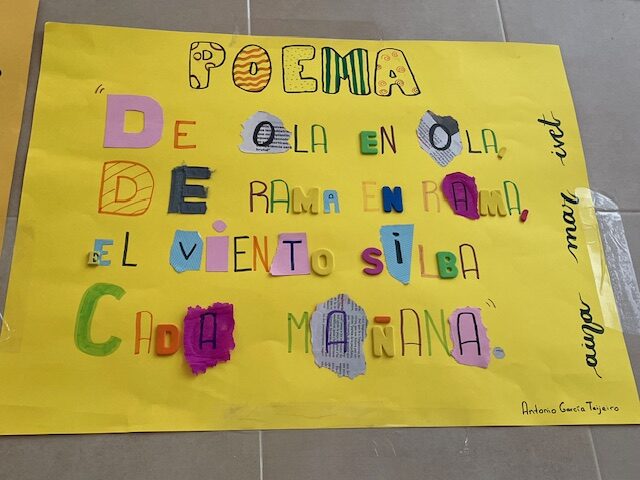 POEMA
"DE OLA EN OLA,
DE RAMA EN RAMA,
EL VIENTO SILBA
CADA MAÑANA".
Antonio García Teijeiro
ainza mar ivet